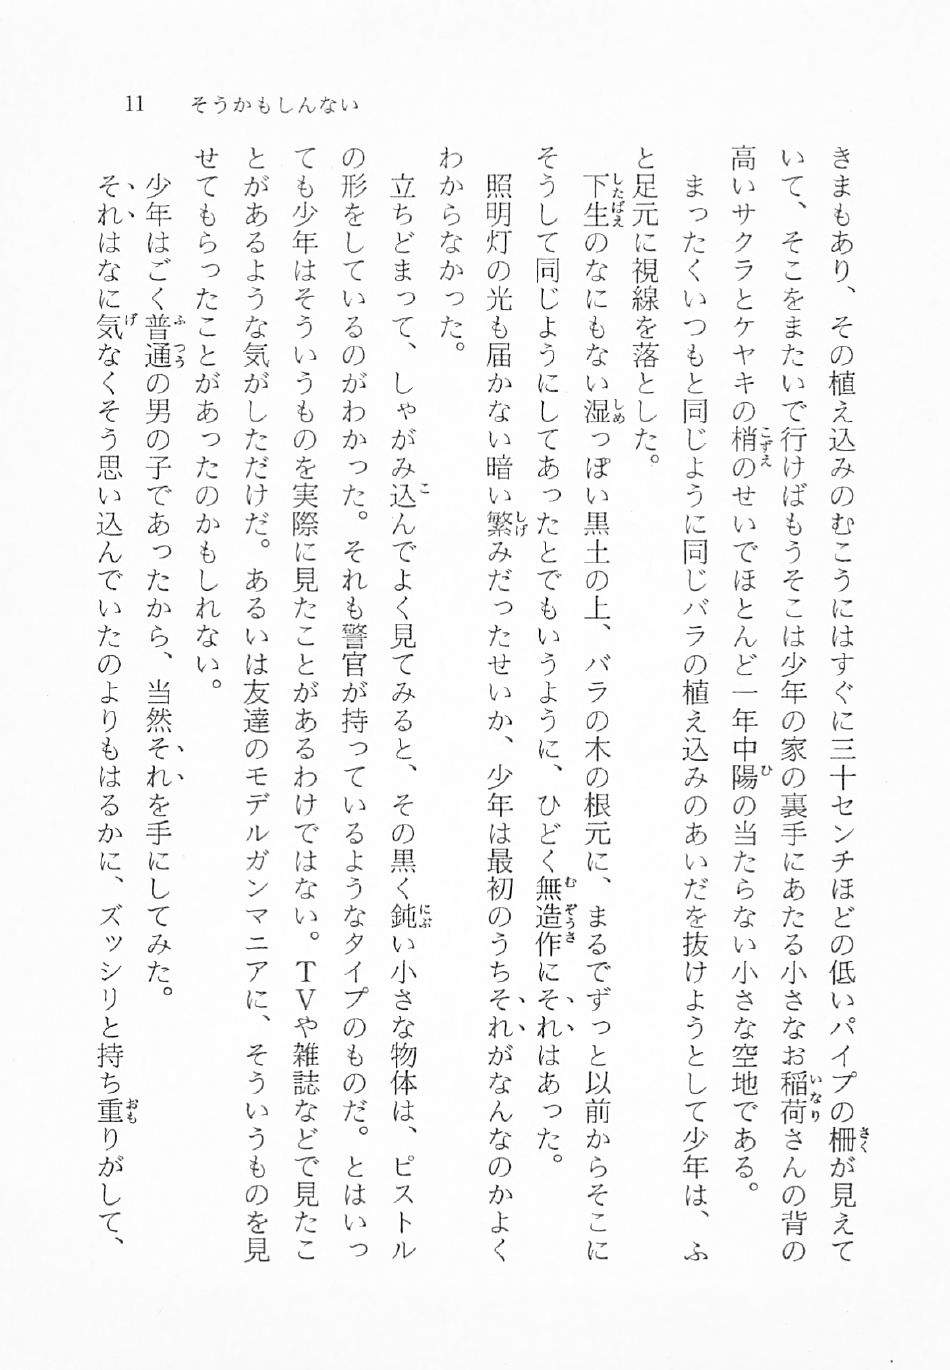 11 そうかもしんない
きまもあり、その植え込みのむこうにはすぐに三十センチほどの低いパイプの柵が見えて
いて、そこをまたいで行けばもうそこは少年の家の裏手にあたる小さなお稲荷さんの背の
高いサクラとケヤキの梢のせいでほとんど一年中陽の当たらない小さな空地である。
まったくいつもと同じように同じバラの植え込みのあいだを抜けようとして少年は、ふ
と足元に視線を落とした。
下生のなにもない湿っぽい黒土の上、バラの木の根元に、まるでずっと以前からそこに
そうして同じようにしてあったとでもいうように、ひどく無造作にそれはあった。
照明灯の光も届かない暗い繁みだったせいか、少年は最初のうちそれがなんなのかよく
わからなかった。
立ちどまって、しゃがみ込んでよく見てみると、その黒く鈍い小さな物体は、ピストル
の形をしているのがわかった。それも警官が持っているようなタイプのものだ。とはいっ
ても少年はそういうものを実際に見たことがあるわけではない。TVや雑誌などで見たこ
とがあるような気がしただけだ。あるいは友達のモデルガンマニアに、そういうものを見
せてもらったことがあったのかもしれない。
少年はごく普通の男の子であったから、当然それを手にしてみた。
それはなに気なくそう思い込んでいたのよりもはるかに、ズッシリと持ち重りがして、